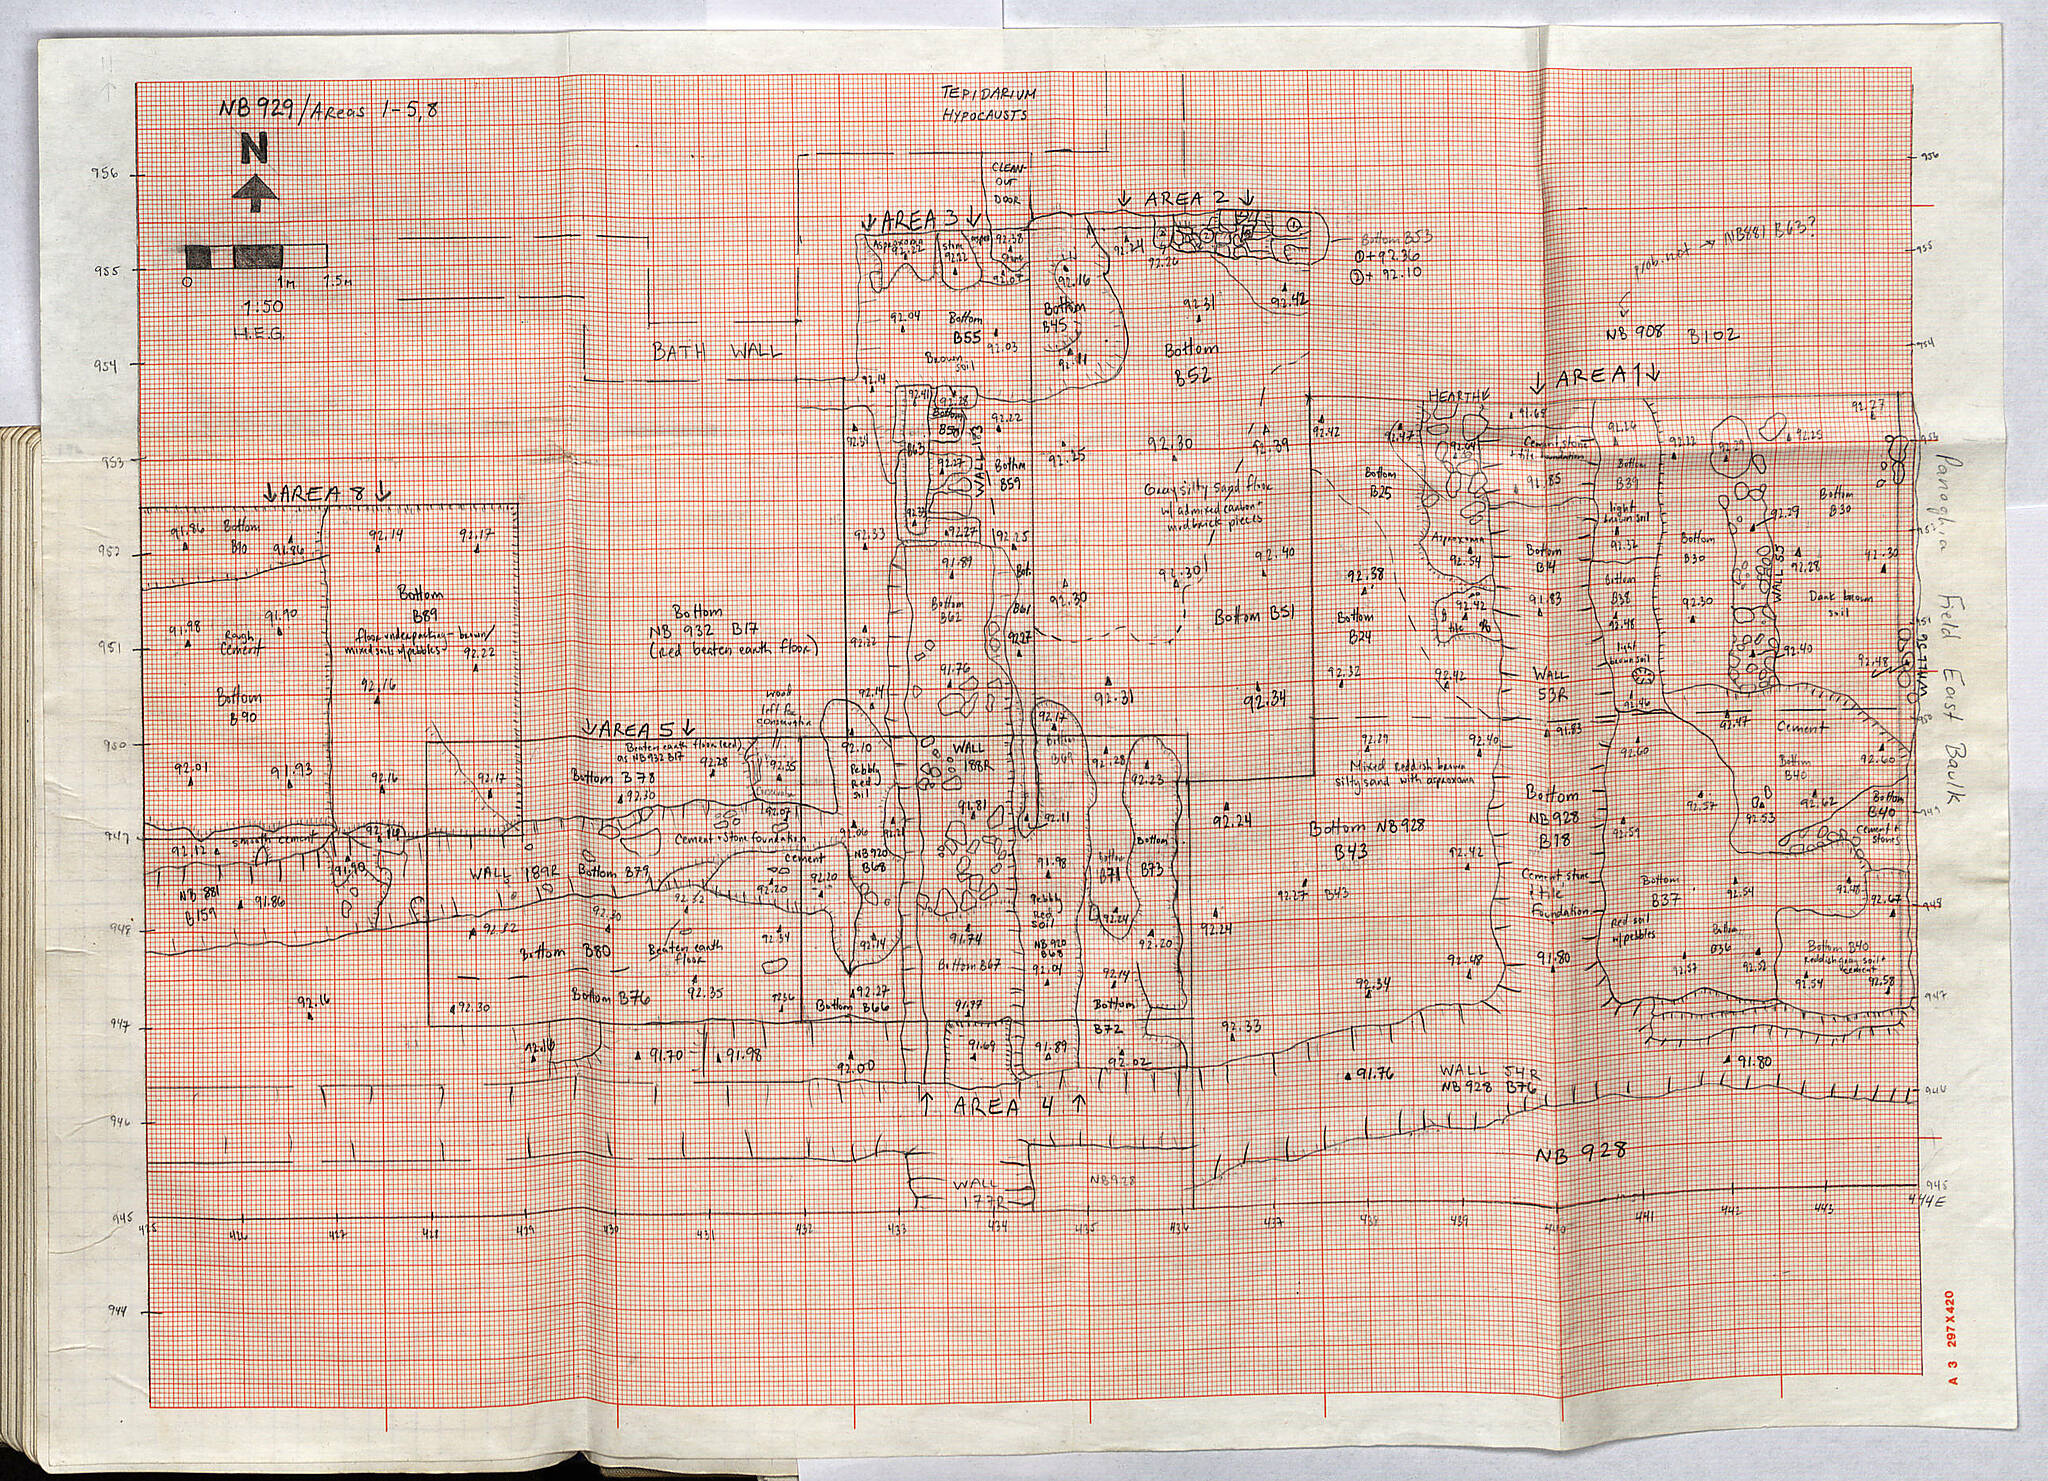 NB 929 / Areas 1-5, 8
N
0 1m 1.5m
1:50
H.E.G.
TEPIDARIUM
HYPOCAUSTS
CLEAN-
OUT
DOOR
BATH WALL
956
955
954
953
952
951
950
949
948
947
946
945
944
↓ AREA 3 ↓
92.38
Stone
92.07
92.04
Bottom
B55
92.03
Brown
soil
92.16
Bottom
B45
92.11
↓ AREA 2 ↓
92.24
92.26
92.31
92.42
Bottom
B52
Bottom B53
① + 92.36
② + 92.10
prob. not → NB881 B63?
NB 908 B102
↓ AREA 1 ↓
HEARTH
91.65
Cement, stone
+ tile foundation
91.85
92.26
Bottom
B39
light
brown soil
92.32
Bottom
B38
92.48
light
brown soil
92.46
92.22
92.29
92.25
92.27
Bottom
B30
92.29
WALL 55
92.28
92.30
Dark brown
soil
Bottom
B30
92.30
92.40
92.48
WALL 56
Panaghia Field East Baulk
92.14
92.41
92.28
Bottom
B58
92.22
92.31
B63
92.27
WALL 187
Bottom
B59
92.25
92.27
92.25
92.33
91.89
Bottom
B62
Bot.
B61
92.27
92.22
91.76
92.14
92.30
92.39
Gray silty sand floor
w/ admixed carbon +
mudbrick pieces
92.30
92.40
92.30
Bottom B51
92.31
92.34
92.42
92.47
92.64
Bottom
B25
Asproxoma
92.54
92.38
Bottom
B24
92.42
tile
92.32
92.42
Bottom
B14
91.83
WALL
53R
91.83
92.29
92.40
Mixed Reddish brown
silty sand with asproxoma
↓ AREA 8 ↓
91.86
Bottom
B90
91.86
92.14
92.17
Bottom
B89
floor underpacking - brown/
mixed soils w/ pebbles
92.22
92.16
91.98
91.90
Rough
Cement
Bottom
B90
92.01
91.93
92.16
92.17
Bottom
NB 932 B17
(red beaten earth floor)
↓ AREA 5 ↓
Beaten earth floor (red)
as NB932 B17
92.28
Bottom B78
92.30
wood
left for
conservator
92.35
92.07
92.10
Pebbly
Red
Soil
92.06
NB920
B68
WALL
188R
91.81
92.17
Bottom
B69
92.11
92.28
92.23
Bottom
B73
Bottom
B71
92.24
92.20
91.98
Pebbly
Red
Soil
NB 920
B68
92.01
92.14
92.12
smooth cement
92.14
91.90
NB 881
B159
91.86
WALL 189R
Bottom B79
Cement + Stone foundation
Cement
92.20
92.20
92.12
92.30
92.32
Bottom B80
Beaten earth
floor
92.34
92.14
91.74
Bottom B67
92.16
92.30
Bottom B76
92.35
92.27
Bottom B66
91.77
Bottom
B72
91.70
91.98
92.00
91.69
91.89
92.02
↑ AREA 4 ↑
92.24
Bottom NB 928
B43
92.42
92.27 B43
92.24
92.48
92.34
92.33
Bottom
NB 928
B78
Cement stone
+ tile
Foundation
91.80
92.60
92.47
Cement
92.60
Bottom
B40
92.57
92.53
92.62
Bottom
B40
Cement +
stones
92.59
Bottom
B37
92.54
92.48
92.67
Red soil
w/ pebbles
Bottom
B36
92.57
92.52
Bottom B40
Reddish gray soil +
cement
92.54
92.58
91.76
WALL 54R
NB 928 B76
91.80
NB 928
WALL
177R
NB928
425 426 427 428 429 430 431 432 433 434 435 436 437 438 439 440 441 442 443 444E
956
955
954
953
952
951
950
949
948
947
946
945
A 3 297 X 420